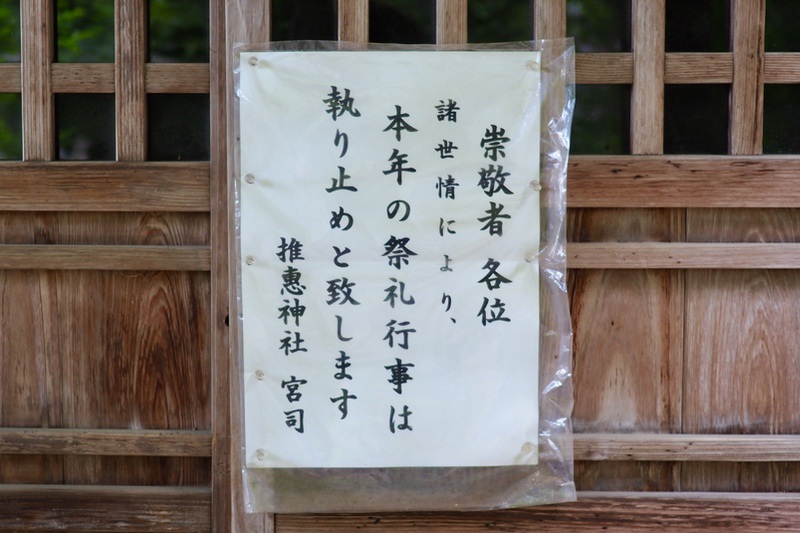 崇敬者 各位
諸世情により、
本年の祭礼行事は
執り止めと致します
推惠神社 宮司